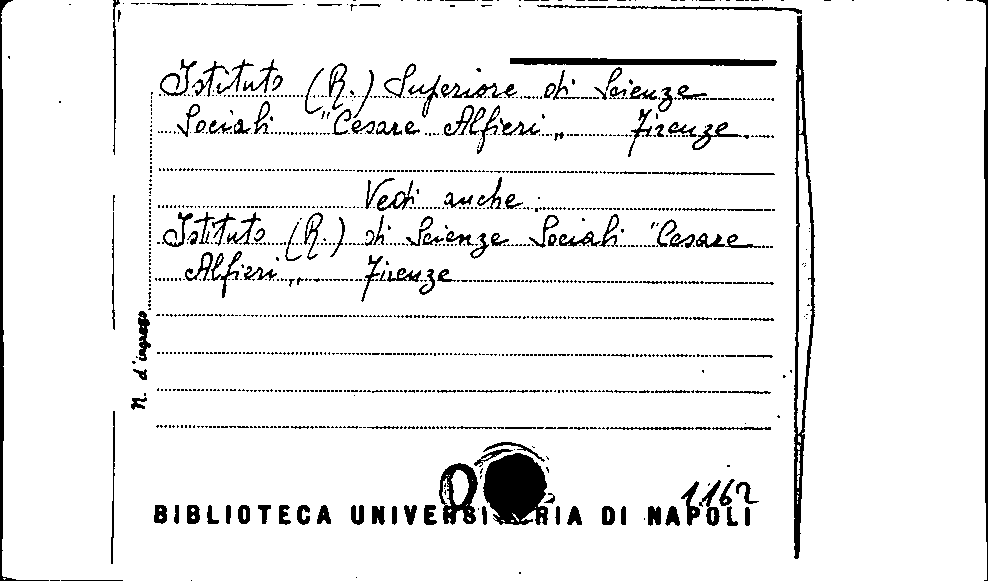 Istituto (R.) Superiore di Scienze
Sociali "Cesare Alfieri„ Firenze.
Vedi anche:
Istituto (R.) di Scienze Sociali "Cesare
Alfieri„ Firenze
N. d'ingresso
1162
BIBLIOTECA UNIVERSITARIA DI NAPOLI